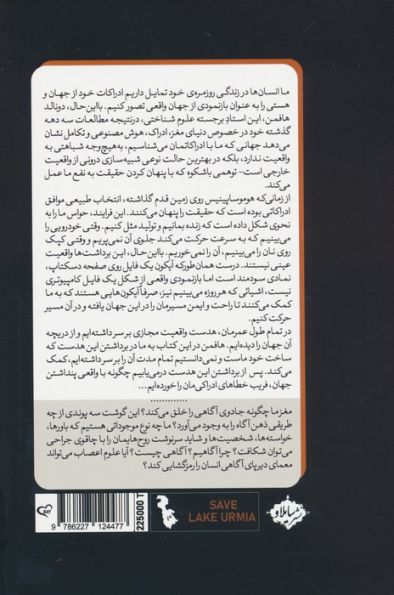 ما انسان‌ها در زندگی روزمره‌ی خود تمایل داریم ادراکات خود از جهان و
هستی را به عنوان بازنمودی از جهان واقعی تصور کنیم. بااین‌حال، دونالد
هافمن، این استاد برجسته علوم شناختی، درنتیجه مطالعات سه دهه
گذشته خود در خصوص دنیای مغز، ادراک، هوش مصنوعی و تکامل نشان
می‌دهد جهانی که ما با ادراکاتمان می‌شناسیم، به‌هیچ‌وجه شباهتی به
واقعیت ندارد، بلکه در بهترین حالت نوعی شبیه‌سازی درونی از واقعیت
خارجی است- توهمی باشکوه که با پنهان کردن حقیقت به نفع ما عمل
می‌کند.
از زمانی‌که هوموساپینیس روی زمین قدم گذاشته، انتخاب طبیعی موافق
ادراکاتی بوده است که حقیقت را پنهان می‌کنند. این فرایند، حواس ما را به
نحوی شکل داده است که زنده بمانیم و تولید مثل کنیم. وقتی خودرویی را
می‌بینیم که به سرعت حرکت می‌کند جلوی آن نمی‌پریم و وقتی کپک
روی نان را می‌بینیم، آن را نمی‌خوریم. بااین‌حال، این برداشت‌ها واقعیت
عینی نیستند. درست همان‌طورکه آیکون یک فایل روی صفحه دسکتاپ،
نمادی سودمند است اما بازنمودی واقعی از شکل یک فایل کامپیوتری
نیست، اشیائی که هر روزه می‌بینیم نیز، صرفاً آیکون‌هایی هستند که به ما
کمک می‌کنند تا راحت و ایمن مسیرمان را در این جهان یافته و در آن مسیر
حرکت کنیم.
در تمام طول عمرمان، هدست واقعیت مجازی بر سر داشته‌ایم و از دریچه
آن جهان را دیده‌ایم. هافمن در این کتاب به ما در برداشتن این هدست که
ساخت خود ماست و نمی‌دانستیم تمام مدت آن را بر سر داشته‌ایم، کمک
می‌کند. پس از برداشتن این هدست درمی‌یابیم چگونه با واقعی پنداشتن
جهان، فریب خطاهای ادراکی‌مان را خورده‌ایم...
مغز ما چگونه جادوی آگاهی را خلق می‌کند؟ این گوشت سه پوندی از چه
طریقی ذهن آگاه را به وجود می‌آورد؟ ما چه نوع موجوداتی هستیم که باورها،
خواسته‌ها، شخصیت‌ها و شاید سرنوشت روح‌هایمان را با چاقوی جراحی
می‌توان شکافت؟ چرا آگاهیم؟ آگاهی چیست؟ آیا علوم اعصاب می‌تواند
معمای دیرپای آگاهی انسان را رمزگشایی کند؟
9 786227 124477
225000 T
SAVE
LAKE URMIA